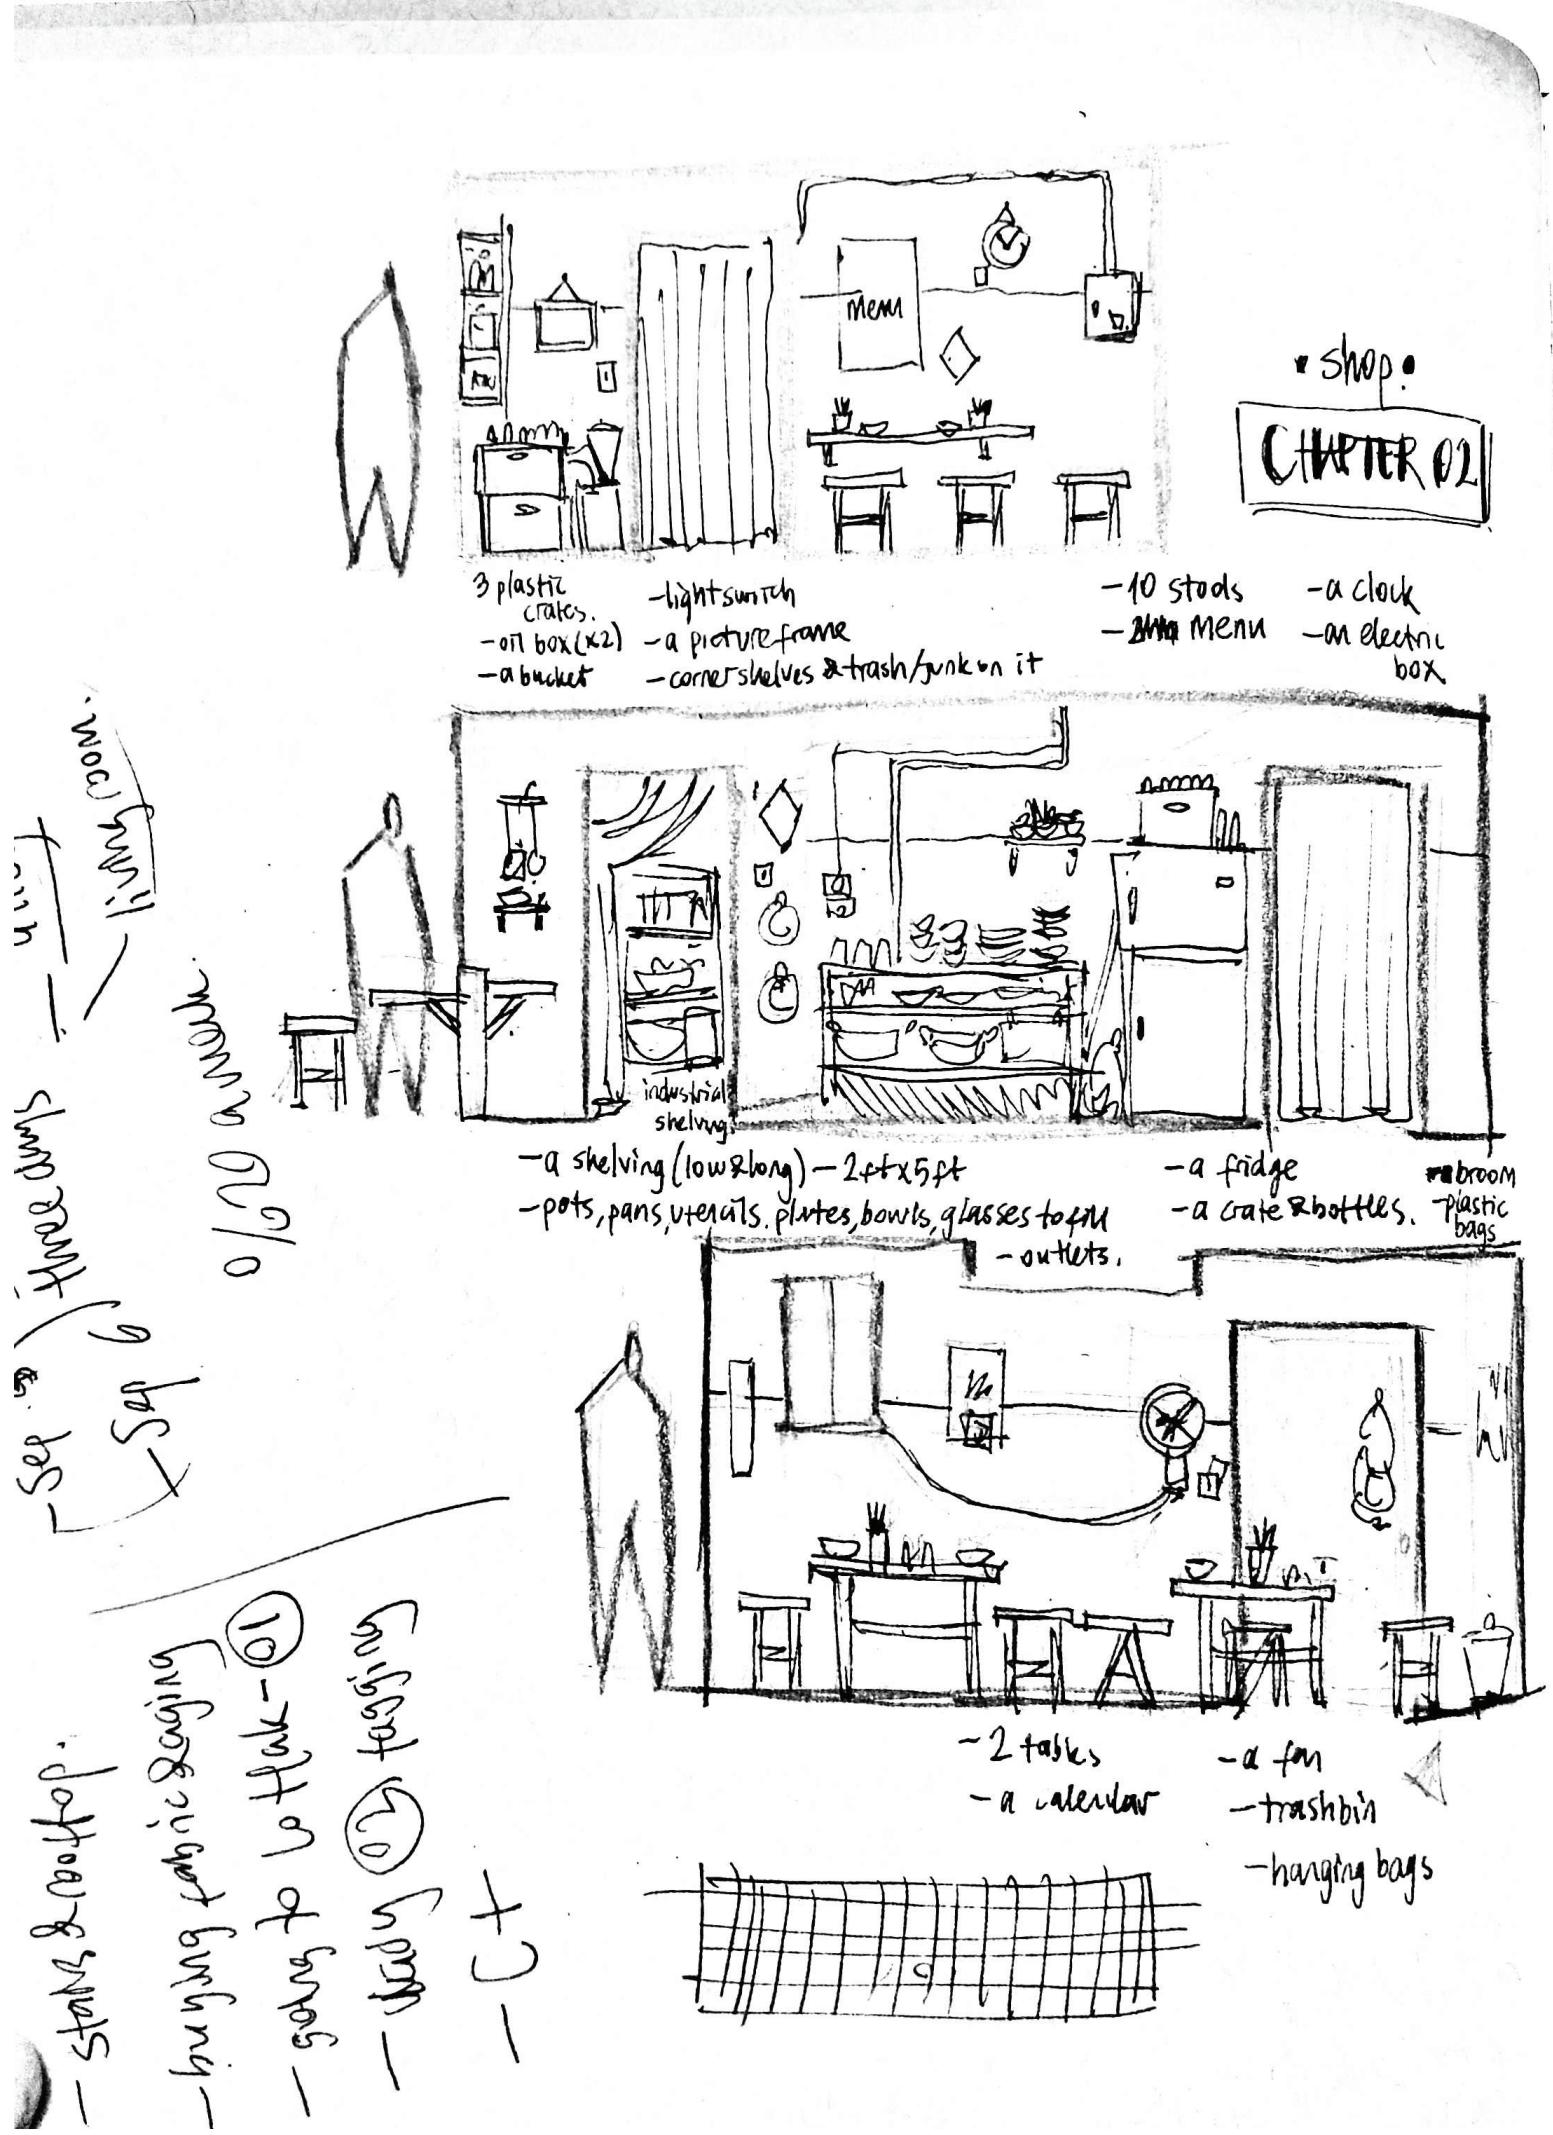 Menu
• shop •
CHAPTER 02
3 plastic
crates.
- oil box (x2)
- a bucket
- lightswitch
- a picture frame
- corner shelves & trash/junk on it
- 10 stools
- Menu
- a clock
- an electric
box
industrial
shelving
- a shelving (low & long) - 2ft x 5ft
- pots, pans, utencils, plates, bowls, glasses to fill
- outlets.
- a fridge
- a crate & bottles.
broom
- plastic
bags
- 2 tables
- a calendar
- a fan
- trashbin
- hanging bags
- living room.
- Seq
three days
- Seq 6
a week.
- stairs & rooftop.
- buying fabric & aging
- going to 01
- 03 tagging
- C+